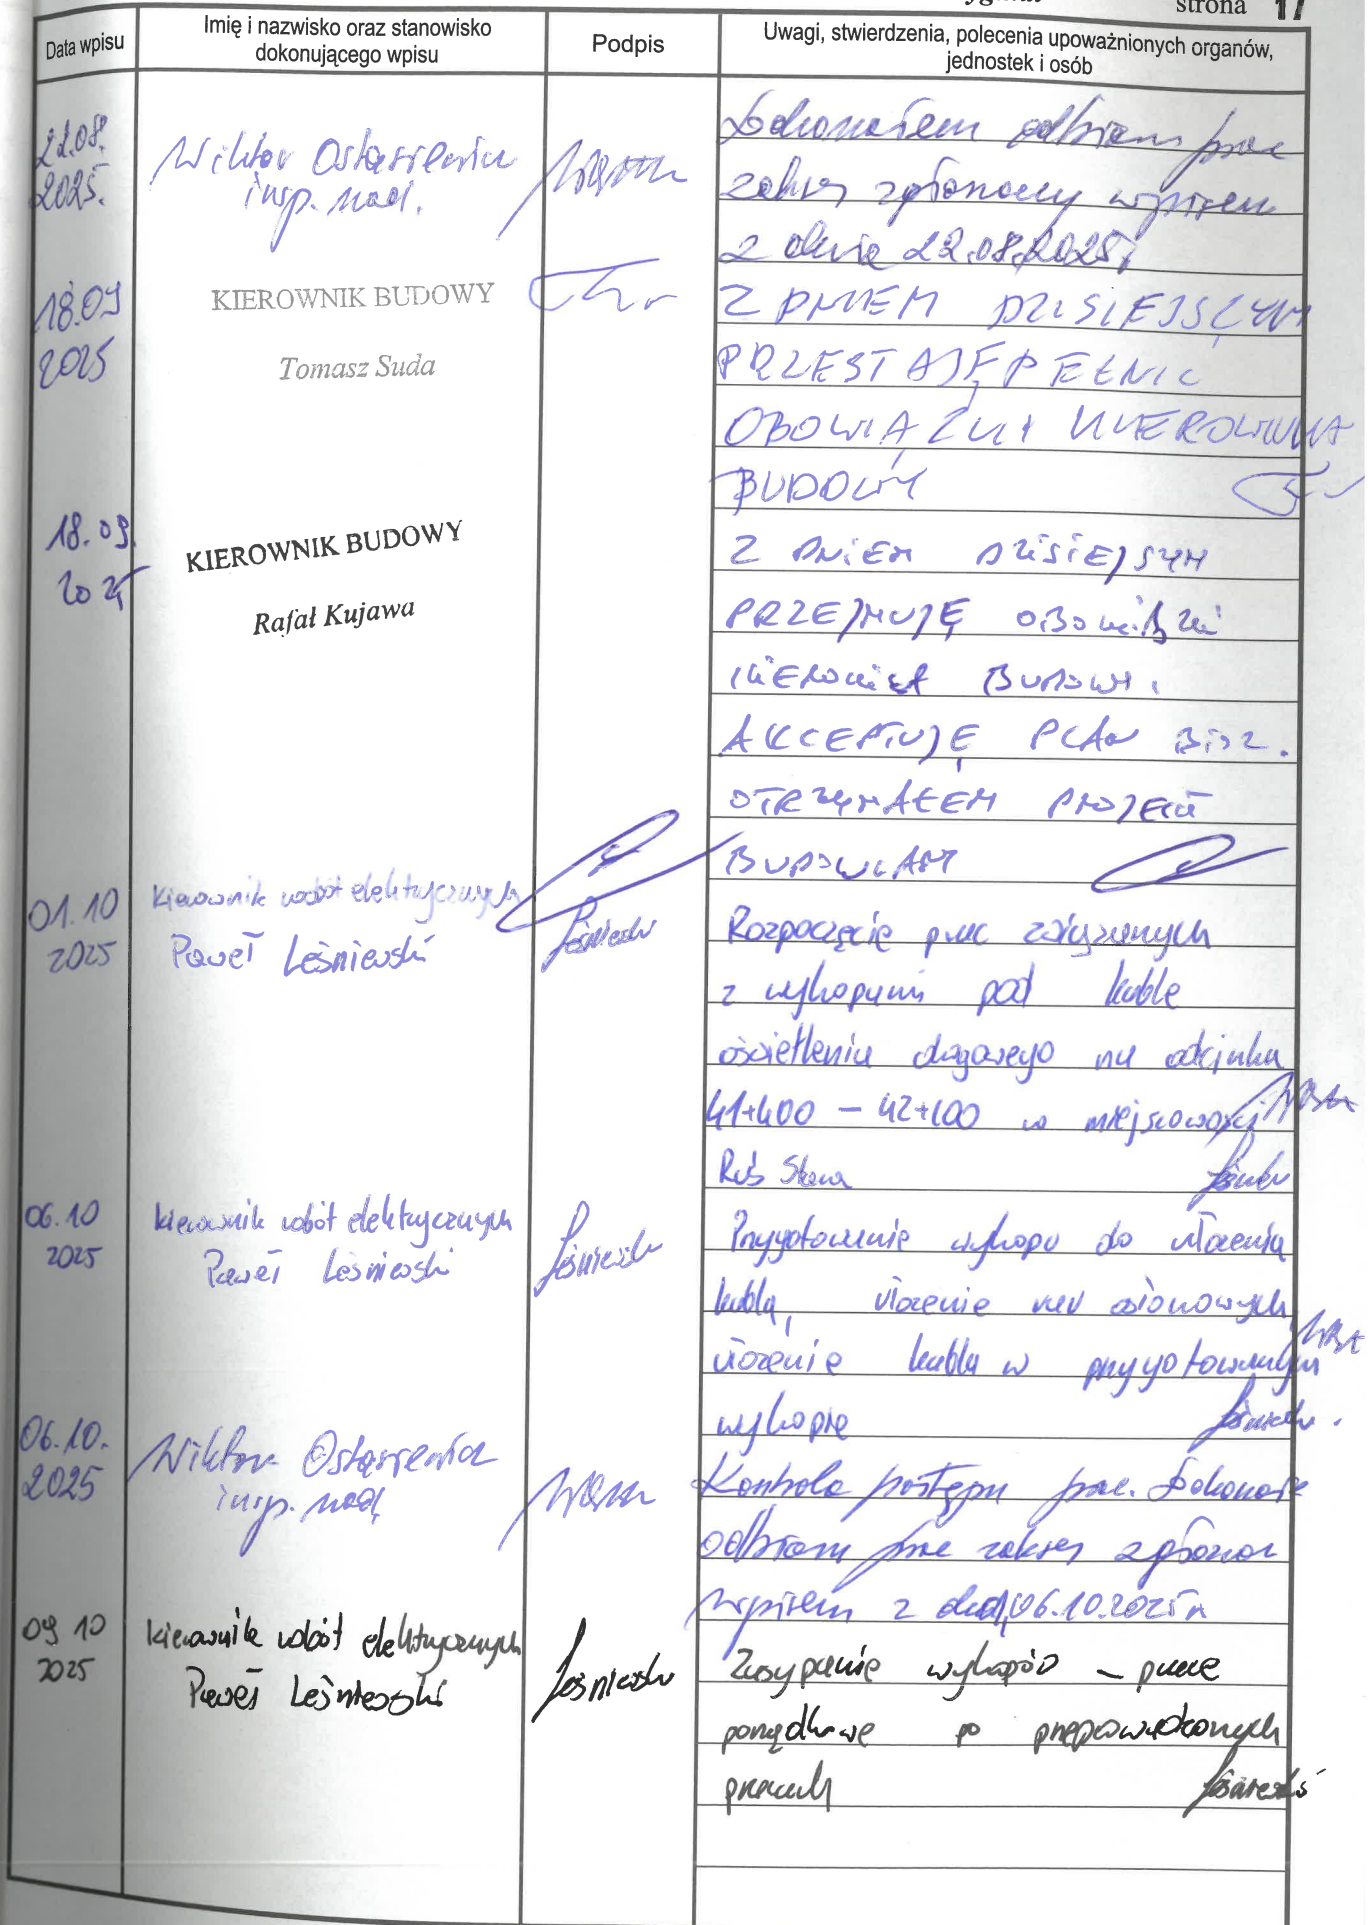 strona 17
Data wpisu
Imię i nazwisko oraz stanowisko
dokonującego wpisu
Podpis
Uwagi, stwierdzenia, polecenia upoważnionych organów,
jednostek i osób
22.08.
2025.
Wiktor
insp. nad.
Dokonałem odbioru prac
zakres zgłoszony wpisem
z dnia 22.08.2025r
18.09
2025
KIEROWNIK BUDOWY
Tomasz Suda
Z DNIEM DZISIEJSZYM
PRZESTAJĘ PEŁNIĆ
OBOWIĄZKI KIEROWNIKA
BUDOWY
18.09
2025
KIEROWNIK BUDOWY
Rafał Kujawa
Z DNIEM DZISIEJSYM
PRZEJMUJĘ OBOWIĄZKI
KIEROWNIKA BUDOWY.
AKCEPTUJĘ PLAN BIOZ.
OTRZYMAŁEM PROJEKT
BUDOWLANY
01.10
2025
Kierownik robót elektrycznych
Paweł Leśniewski
Leśniewski
Rozpoczęcie prac związanych
z wykopami pod kable
oświetlenia drogowego na odcinku
41+400 – 42+100 w miejscowości
Ruś Stara
06.10
2025
kierownik robót elektrycznych
Paweł Leśniewski
Leśniewski
Przygotowanie wykopu do ułożenia
kabla, ułożenie rur osłonowych,
ułożenie kabla w przygotowanym
wykopie
06.10.
2025
Wiktor
insp. nad.
Kontrola postępu prac. Dokonano
odbioru prac zakres zgłoszon
wpisem z dnia 06.10.2025r
09 10
2025
kierownik robót elektrycznych
Paweł Leśniewski
Leśniewski
Zasypanie wykopów – prace
porządkowe po przeprowadzonych
pracach Leśniewski